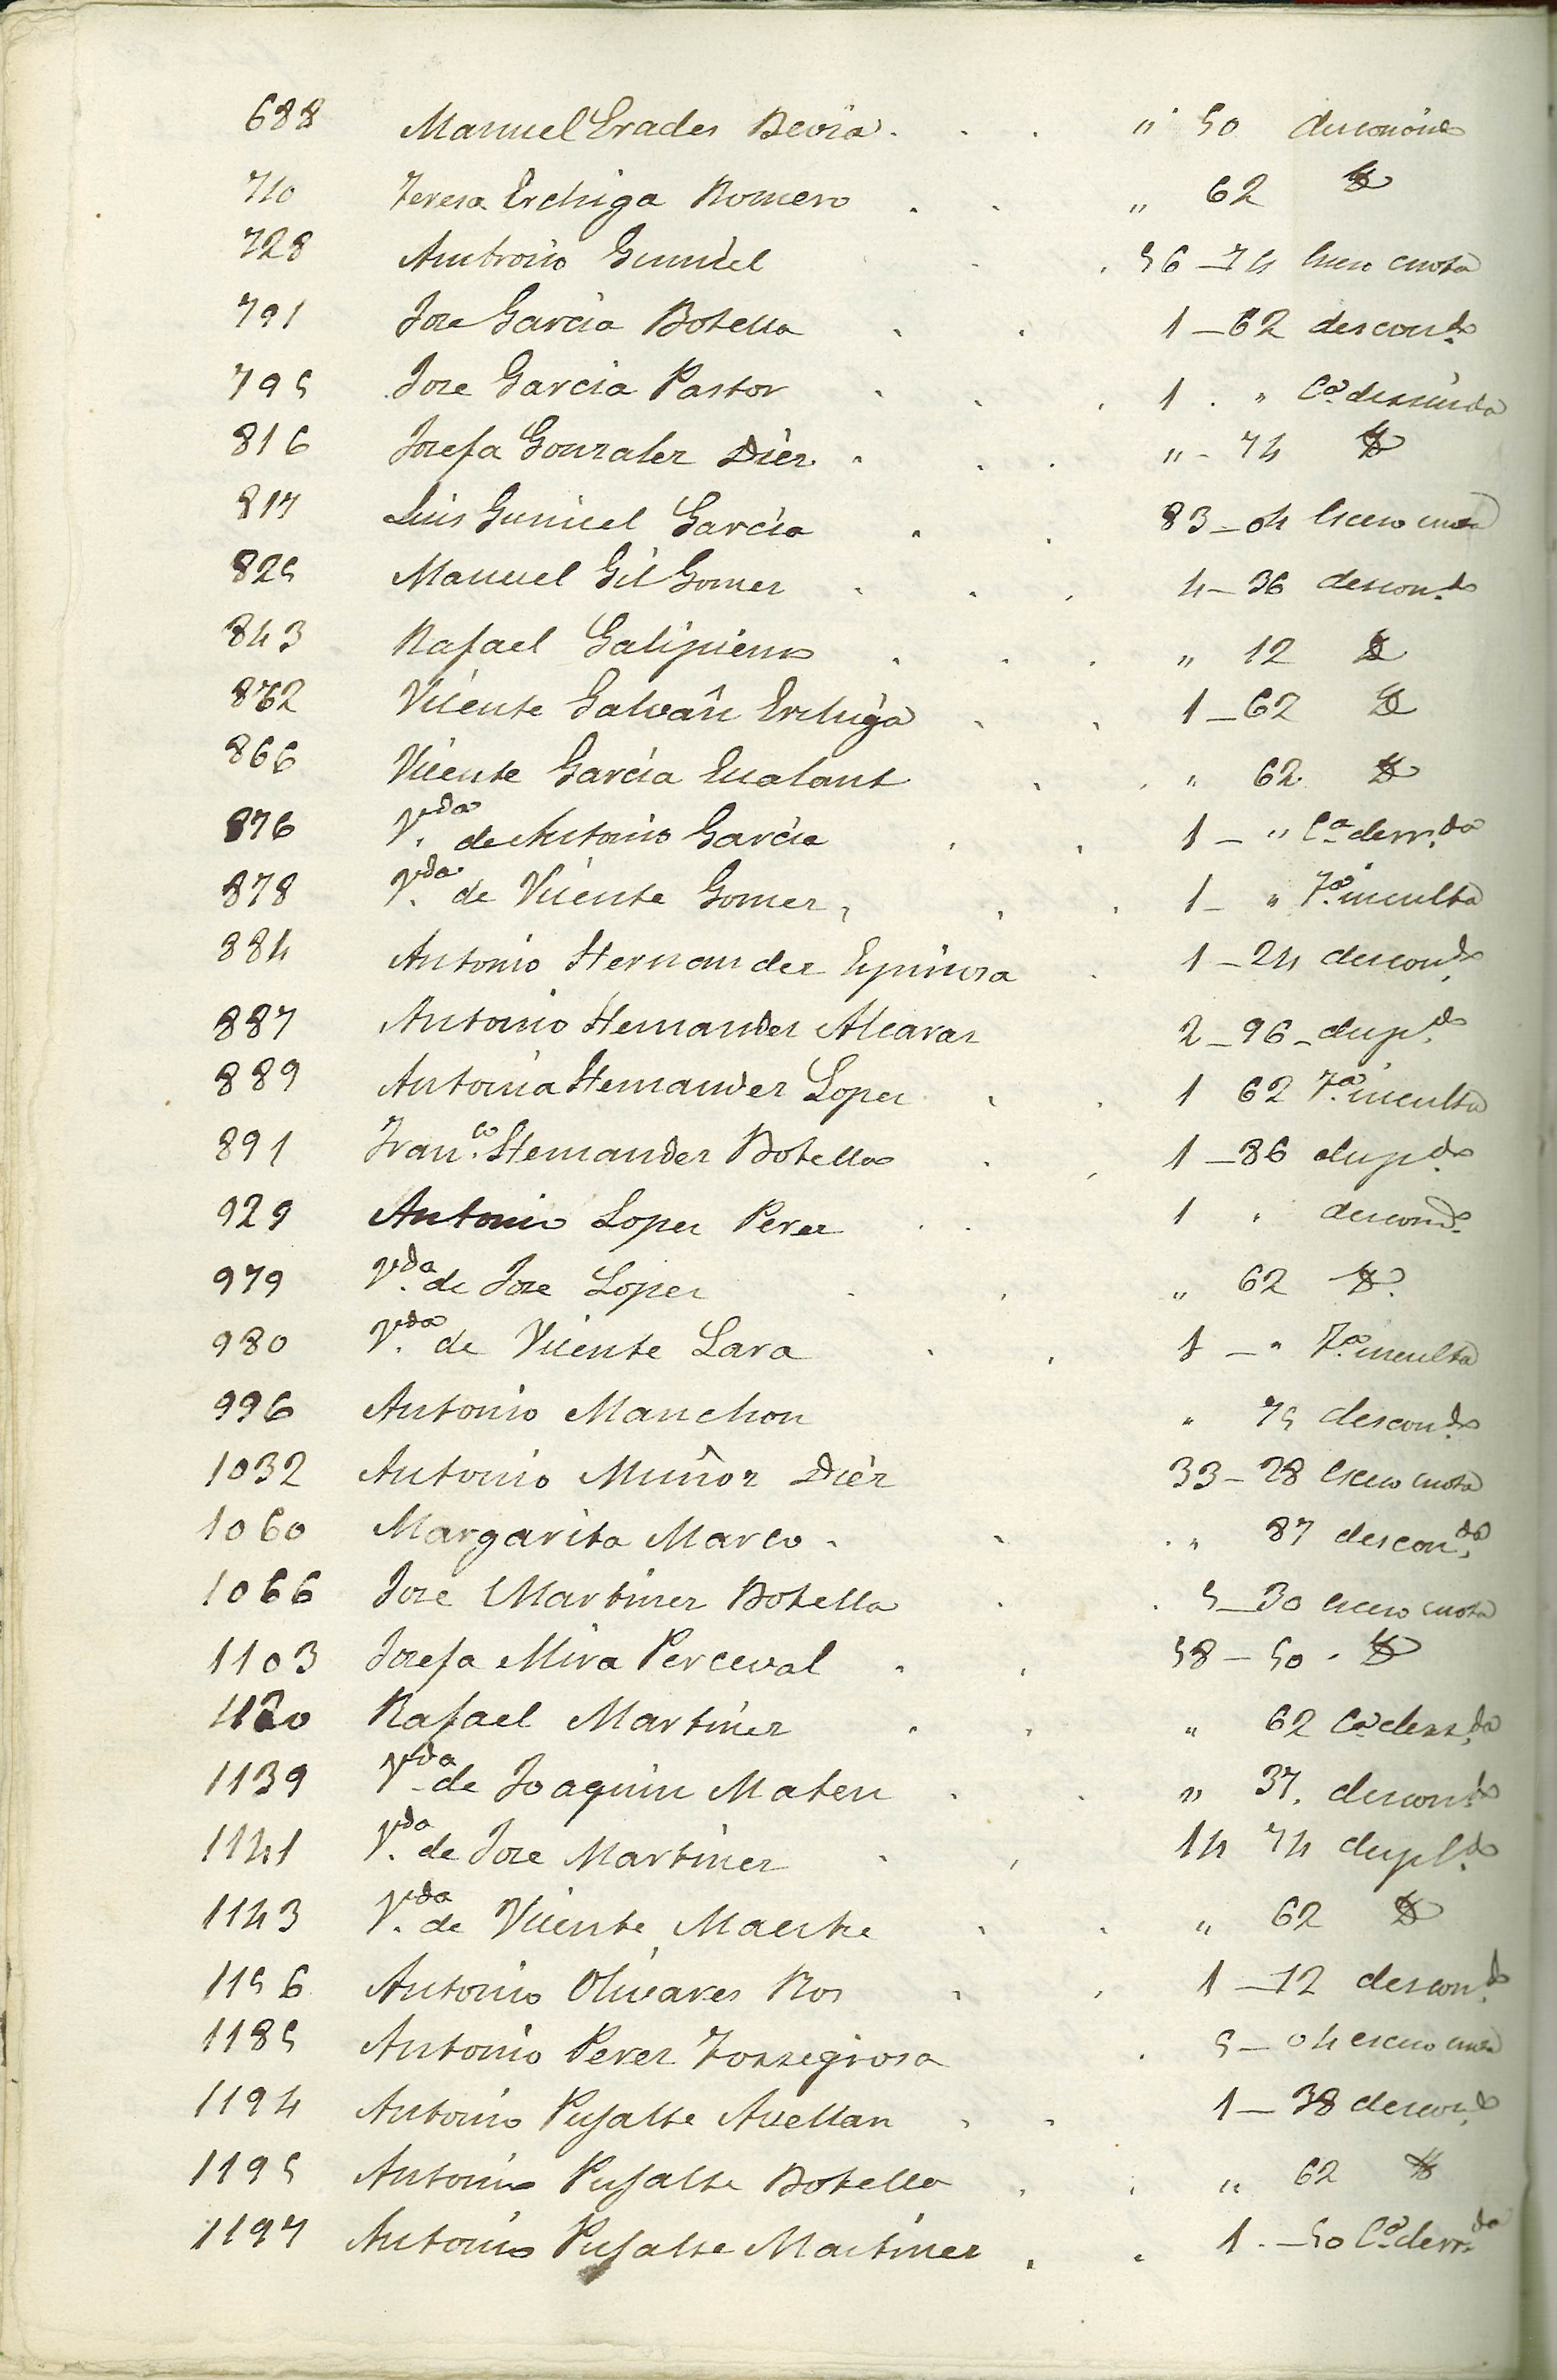 688 Manuel Erades Bevia . . . " 50 desconocido
710 Teresa Erchiga Romero . . " 62 Id
728 Ambrosio Gumiel . . 56 - 74 Exceso cuota
791 Jose Garcia Botella . . 1 - 62 descon.do
795 Jose Garcia Pastor . . . 1 . " Ca derruida
816 Josefa Gonzalez Diez . . . " - 74 Id
817 Luis Gumiel Garcia . . 83 - 04 Exceso cuota
825 Manuel Gil Gomez . . . 4 - 36 descon.do
843 Rafael Galipienso . . . " 12 Id
862 Vicente Galvañ Erchiga . . 1 - 62 Id
866 Vicente Garcia Escalant . . " 62 Id
876 V.da de Antonio Garcia . . 1 - " C.a derr.da
878 V.da de Vicente Gomez , . . 1 - " T.a inculta
884 Antonio Hernandez Espinosa . 1 - 24 descon.do
887 Antonio Hernandez Alcaraz 2 - 96 - dup.do
889 Antonia Hernandez Lopez . . 1 62 T.a inculta
891 Fran.co Hernandez Botella . . 1 - 86 dup.do
929 Antonio Lopez Perez . . 1 " descon.do
979 V.da de Jose Lopez . . " 62 Id.
980 V.da de Vicente Lara . . 1 - " T.a inculta
996 Antonio Manchon " 75 descon.do
1032 Antonio Muñoz Diez 33 - 28 Exceso cuota
1060 Margarita Marco . . . " 87 descon.da
1066 Jose Martinez Botella . . 5 - 30 exceso cuota
1103 Josefa Mira Perceval . . 58 - 50 . Id
1120 Rafael Martinez . . " 62 Ca derr.da
1139 V.da de Joaquin Mateu . . " 37. descon.do
1141 V.da de Jose Martinez . . 14 74 dupl.do
1143 V.da de Vicente Maestre . . " 62 Id
1156 Antonio Olivares Ros . . 1 - 12 descon.do
1185 Antonio Perez Torregrosa . 5 - 04 exceso cuota
1194 Antonio Pujalte Avellan . . 1 - 38 descon.do
1195 Antonio Pujalte Botella . . " 62 Id
1197 Antonio Pujalte Martinez . . 1 . - 50 C.a derr.da